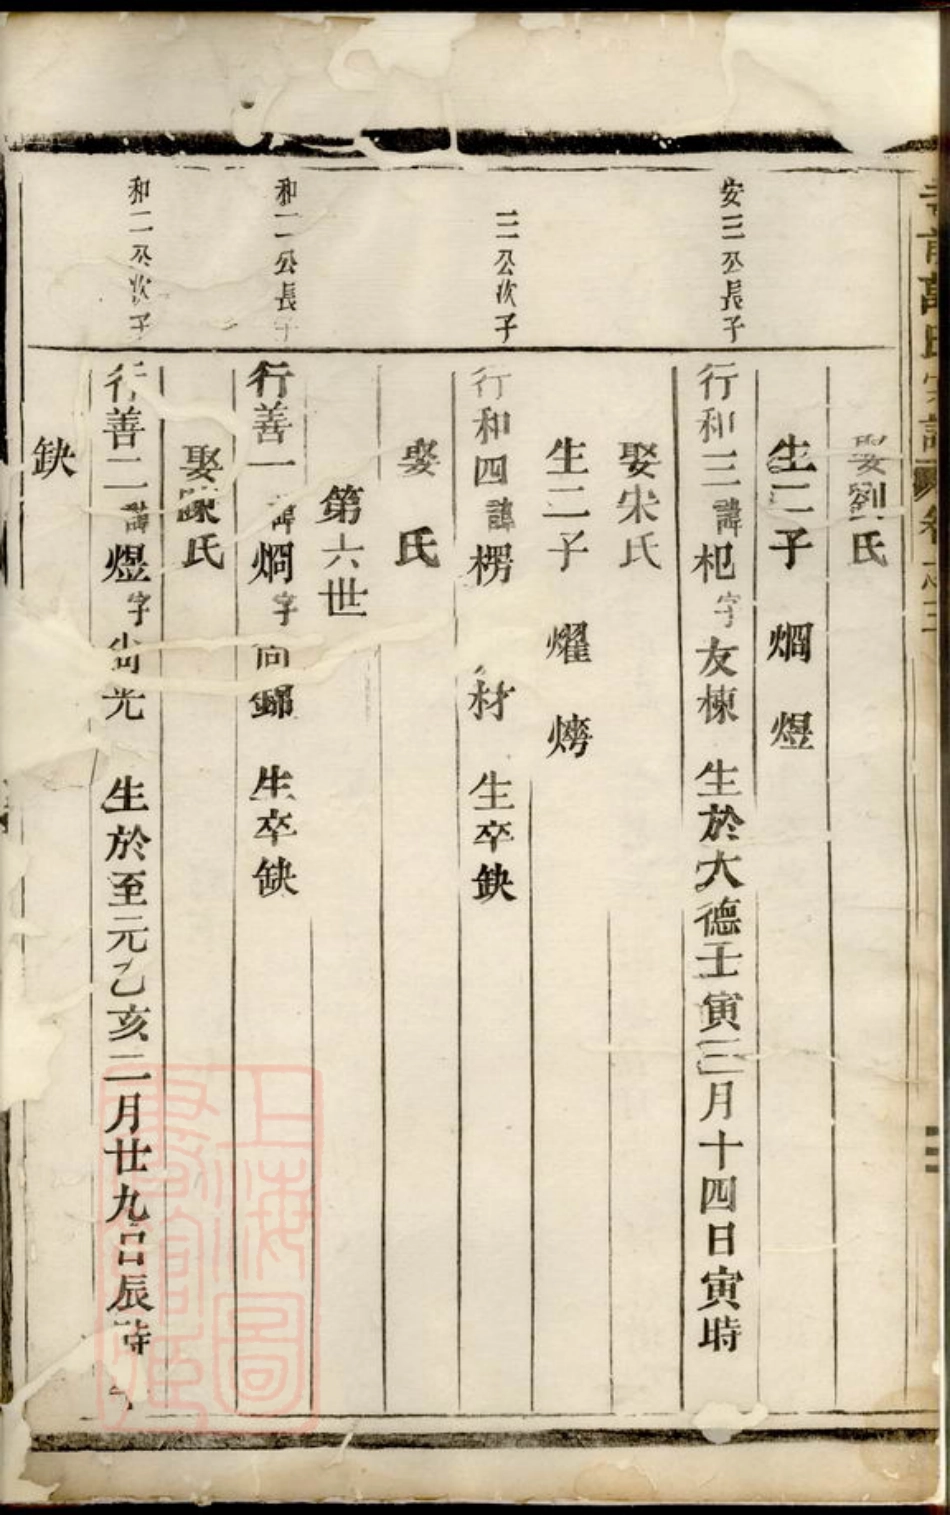 萬氏宗譜 卷之三
娶劉氏
生二子 烱 煜
安三公長子
行和三諱杞字友棟 生於大德壬寅三月十四日寅時
娶宋氏
生二子 燿 㶿
三公次子
行和四諱楞 材 生卒缺
娶 氏
第六世
和一公長子
行善一諱烱字尚錦 生卒缺
娶陳氏
和二公次子
行善二諱煜字尚光 生於至元乙亥二月廿九日辰時
缺
上海圖書館藏